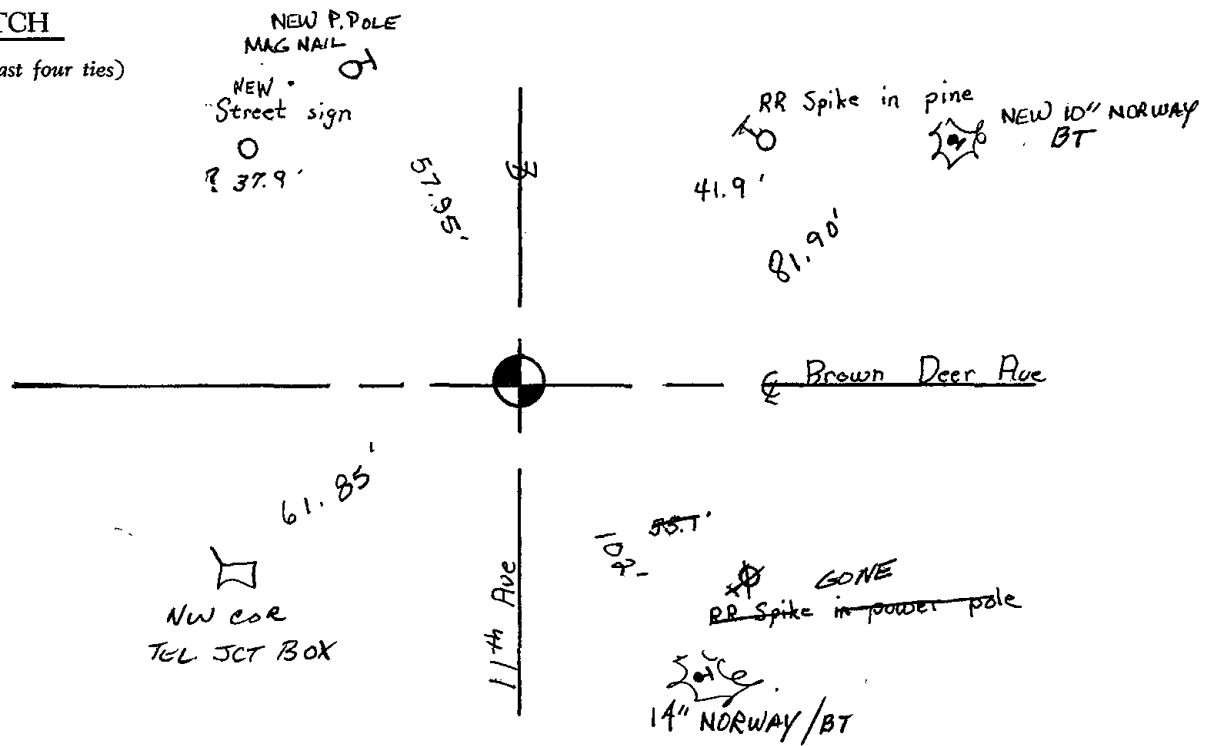 TCH
ast four ties)
NEW P. POLE
MAG NAIL
NEW
Street sign
? 37.9'
57.95'
RR Spike in pine
NEW 10" NORWAY
BT
41.9'
81.90'
℄ Brown Deer Ave
61.85'
NW COR
TEL JCT BOX
11th Ave
55.1'
GONE
RR Spike in power pole
14" NORWAY/BT